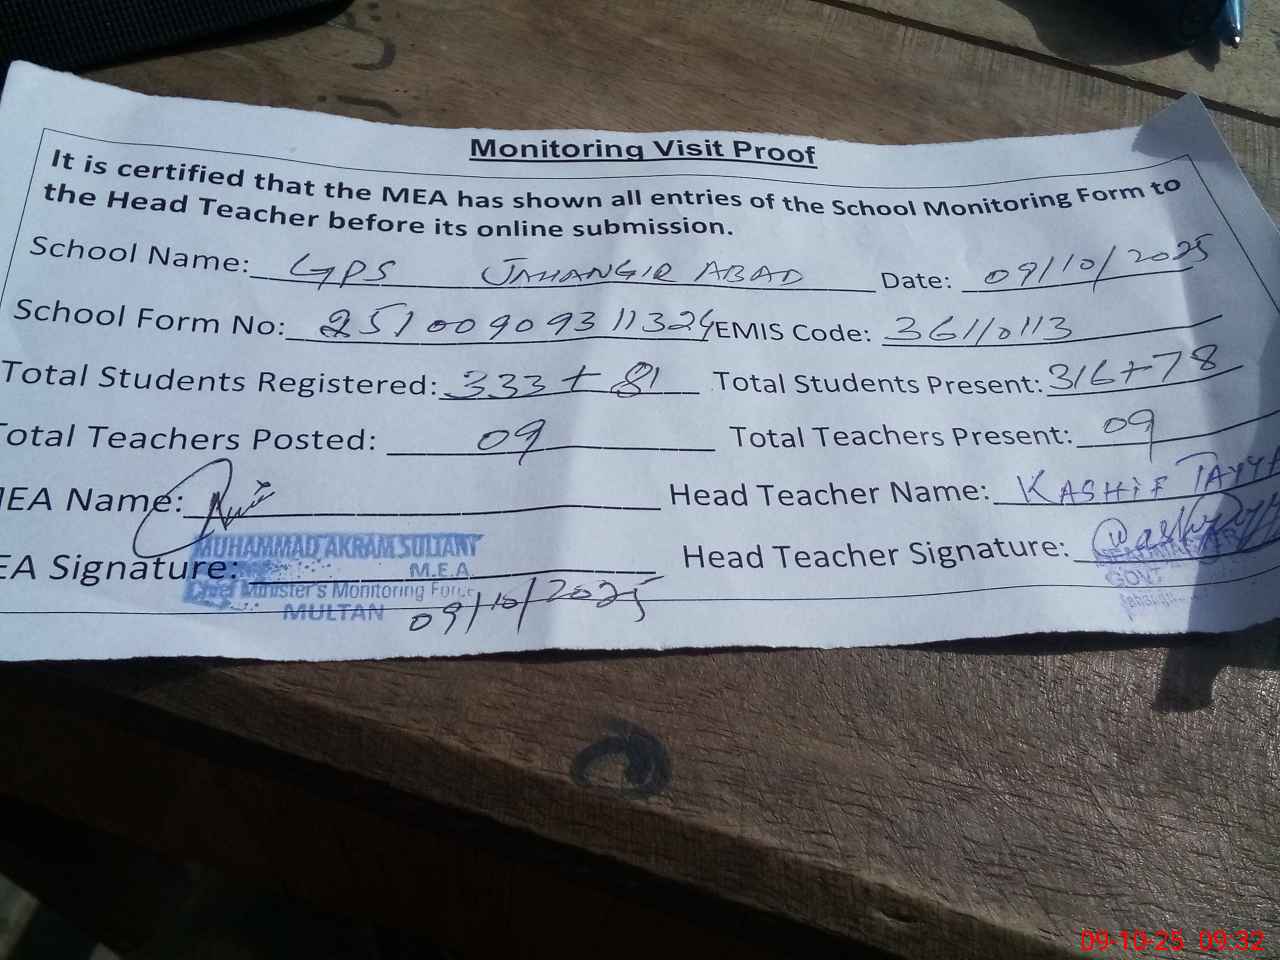 Monitoring Visit Proof
It is certified that the MEA has shown all entries of the School Monitoring Form to
the Head Teacher before its online submission.
School Name: GPS JAHANGIR ABAD Date: 09/10/2025
School Form No: 25100909311324 EMIS Code: 36110113
Total Students Registered: 333 + 81 Total Students Present: 316+78
Total Teachers Posted: 09 Total Teachers Present: 09
MEA Name: Head Teacher Name: KASHIF
MUHAMMAD AKRAM SULTANI
EA Signature: Head Teacher Signature:
M.E.A
Chief Minister's Monitoring Force
MULTAN
GOVT
09/10/2025
09-10-25 09:32